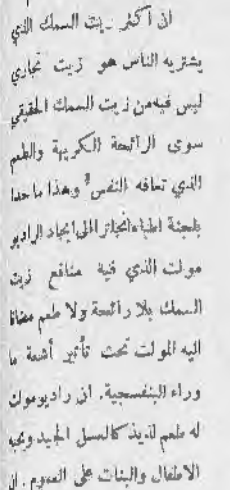 ان اكثر زيت السمك الذي
يشتريه الناس هو زيت تجاري
ليس فيه من زيت السمك الحقيقي
سوى الرائحة الكريهة والطعم
الذي تعافه النفس وهذا ما حدا
بلجنة اطباء انجلترا الى ايجاد الراديو
مولت الذي فيه منافع زيت
السمك بلا رائحة ولا طعم مضافا
اليه المولت تحت تأثير أشعة ما
وراء البنفسجية. ان راديومولت
له طعم لذيذ كالعسل الجيد ويحبه
الاطفال والبنات على العموم. ان